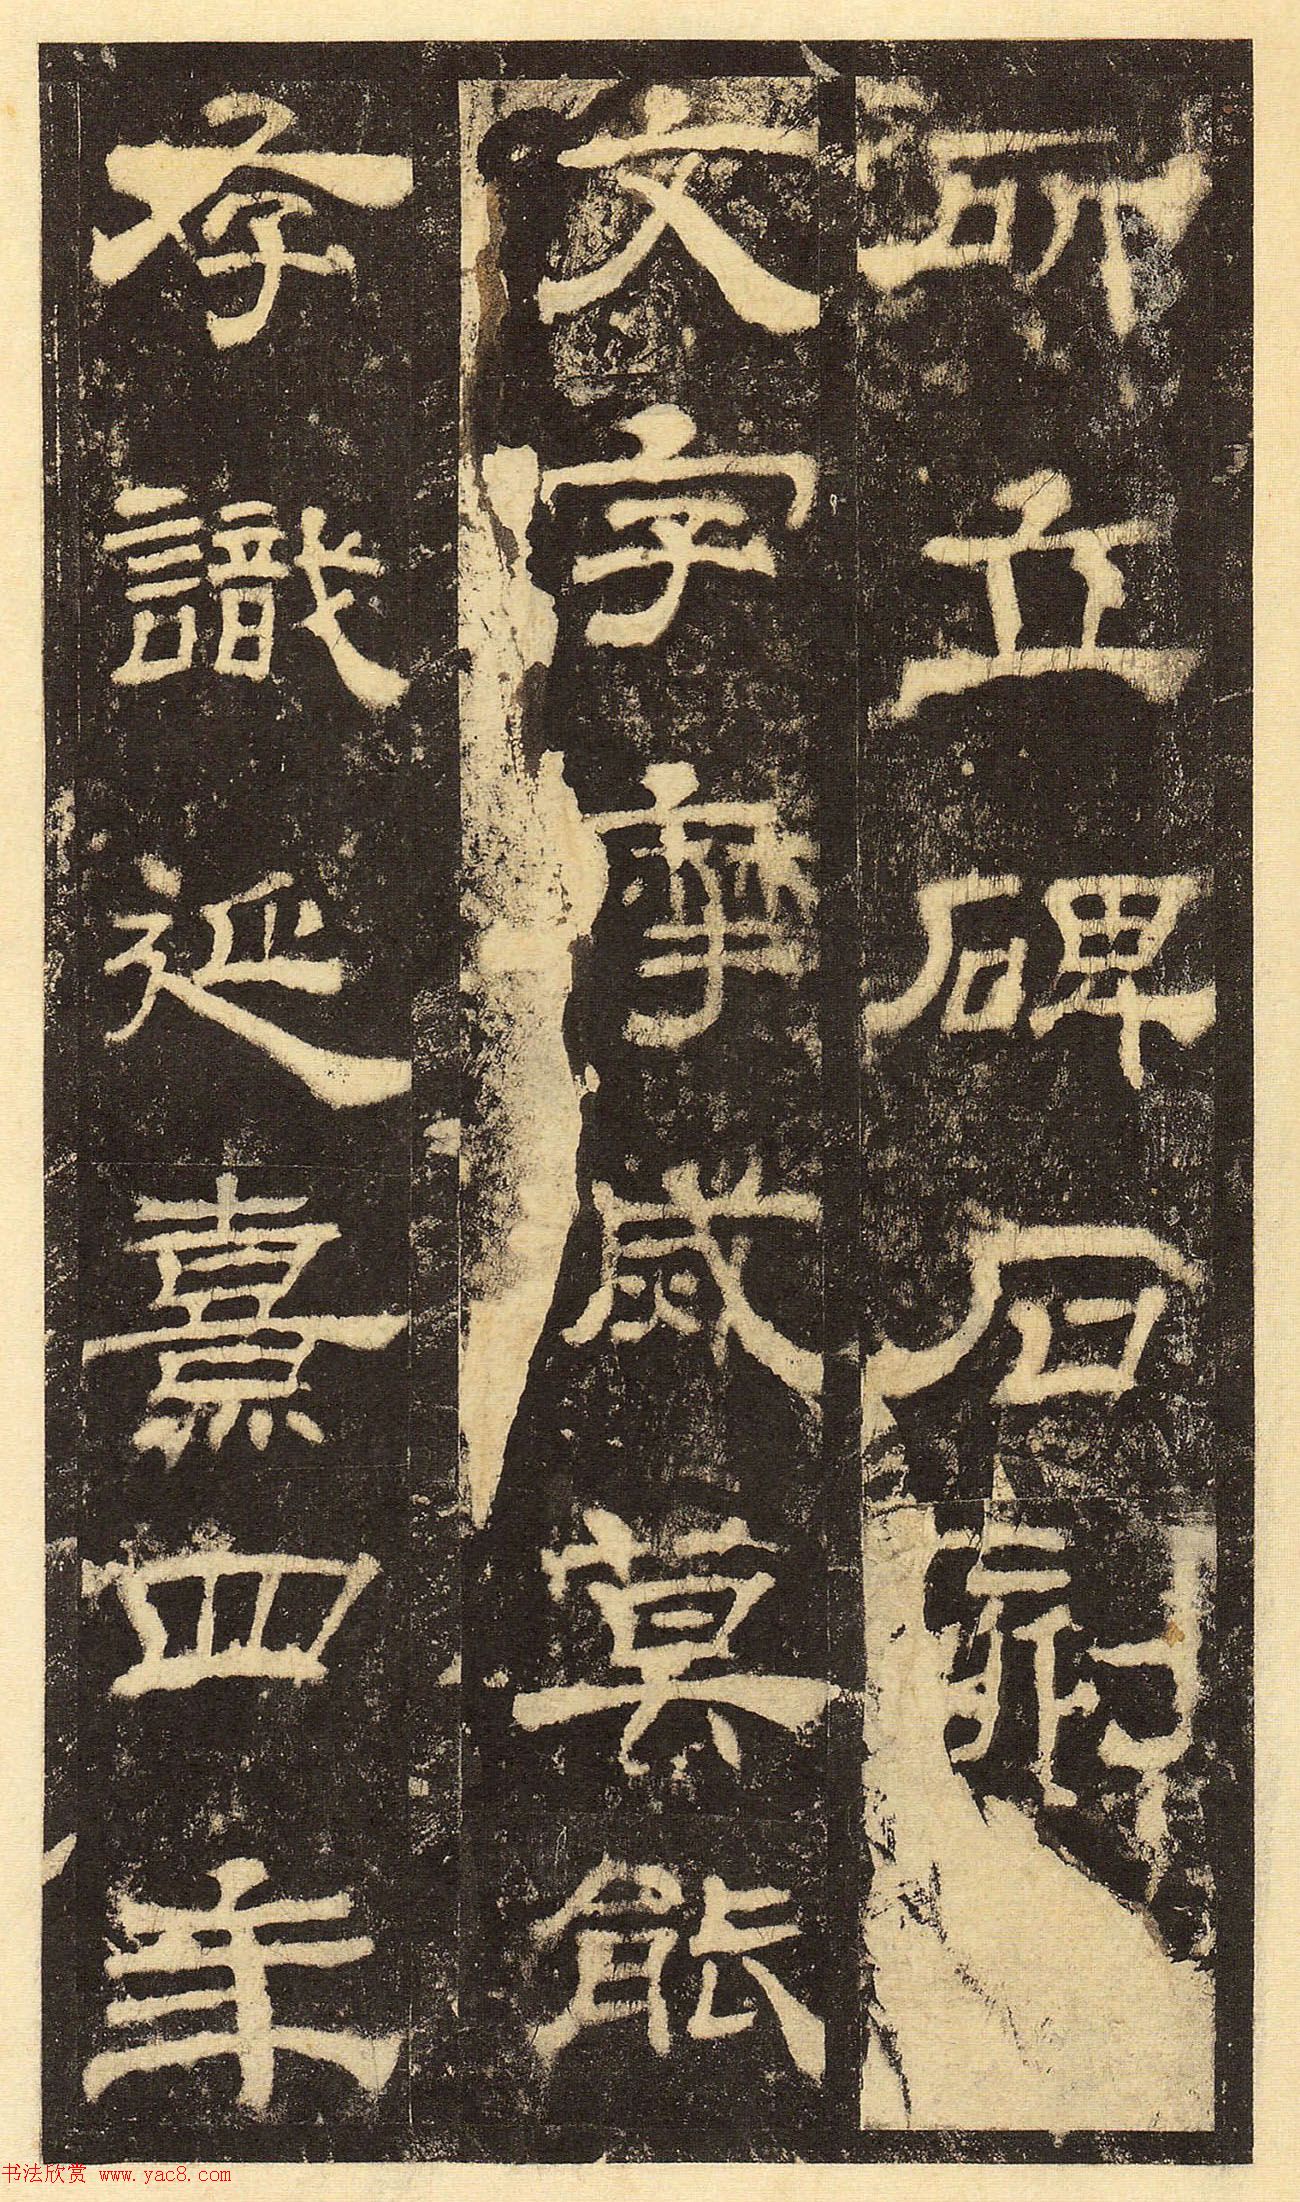 所立碑石刻
文字摩烕莫能
存識延熹四年
书法欣赏 www.yac8.com